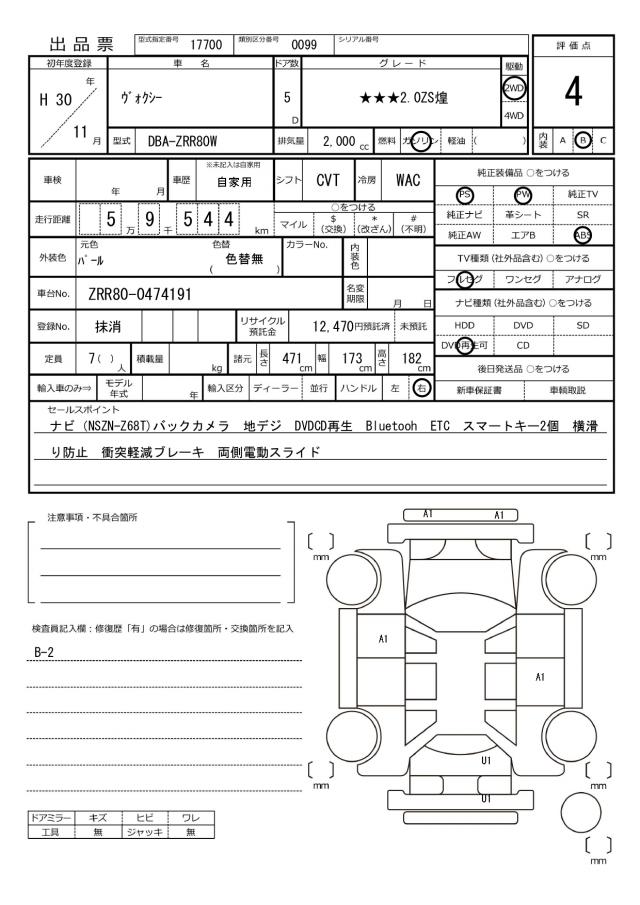 出品票 型式指定番号 17700 類別区分番号 0099 シリアル番号
評価点
4
初年度登録 車名 ドア数 グレード 駆動
H 30 年 11 月 ヴォクシー 5 D ★★★2.0ZS煌 2WD 4WD
型式 DBA-ZRR80W 排気量 2,000 cc 燃料 ガソリン 軽油 ( )
内装 A B C
車検 年 月 車歴 ※未記入は自家用 自家用 シフト CVT 冷房 WAC
走行距離 5 万 9 千 5 4 4 km
○をつける
マイル $(交換) *(改ざん) #(不明)
外装色 元色 パール 色替 ( 色替無 ) カラーNo. 内装色
車台No. ZRR80-0474191 名変期限 月 日
登録No. 抹消 リサイクル預託金 12,470円預託済 未預託
定員 7( )人 積載量 kg 諸元 長さ 471 cm 幅 173 cm 高さ 182 cm
輸入車のみ⇒ モデル年式 年 輸入区分 ディーラー 並行 ハンドル 左 右
純正装備品 ○をつける
PS PW 純正TV
純正ナビ 革シート SR
純正AW エアB ABS
TV種類(社外品含む)○をつける
フルセグ ワンセグ アナログ
ナビ種類(社外品含む)○をつける
HDD DVD SD
DVD再生可 CD
後日発送品 ○をつける
新車保証書 車輌取説
セールスポイント
ナビ (NSZN-Z68T)バックカメラ 地デジ DVDCD再生 Bluetooh ETC スマートキー2個 横滑
り防止 衝突軽減ブレーキ 両側電動スライド
注意事項・不具合箇所
検査員記入欄:修復歴「有」の場合は修復箇所・交換箇所を記入
B-2
ドアミラー キズ ヒビ ワレ
工具 無 ジャッキ 無
A1 A1
[ ] mm [ ] mm
A1
A1
U1
[ ] mm [ ] mm
U1
[ ] mm